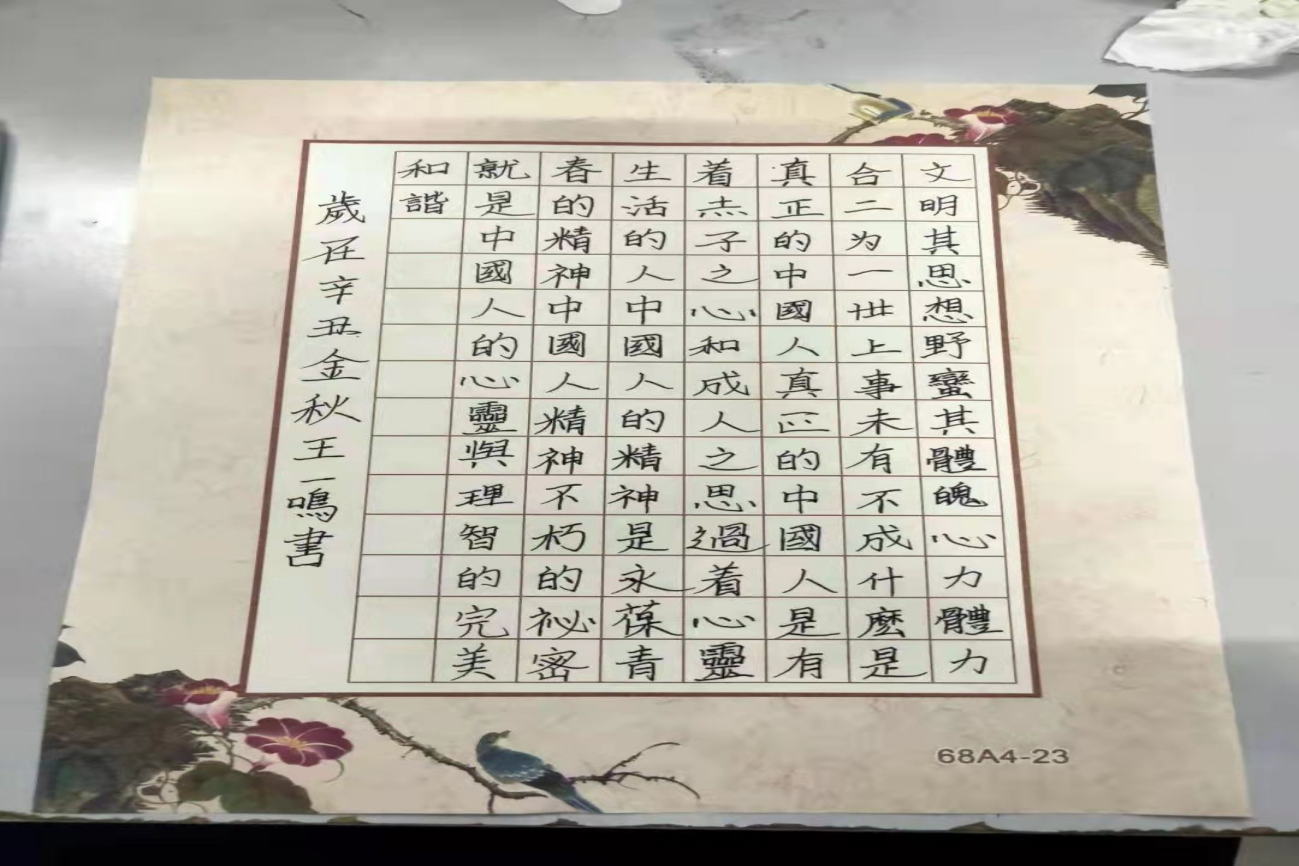 文明其思想野蠻其體魄心力體力
合二为一世上事未有不成什麽是
真正的中國人真正的中國人是有
着赤子之心和成人之思過着心靈
生活的人中國人的精神是永葆青
春的精神中國人精神不朽的祕密
就是中國人的心靈與理智的完美
和諧
歲在辛丑金秋王一鳴書
68A4-23